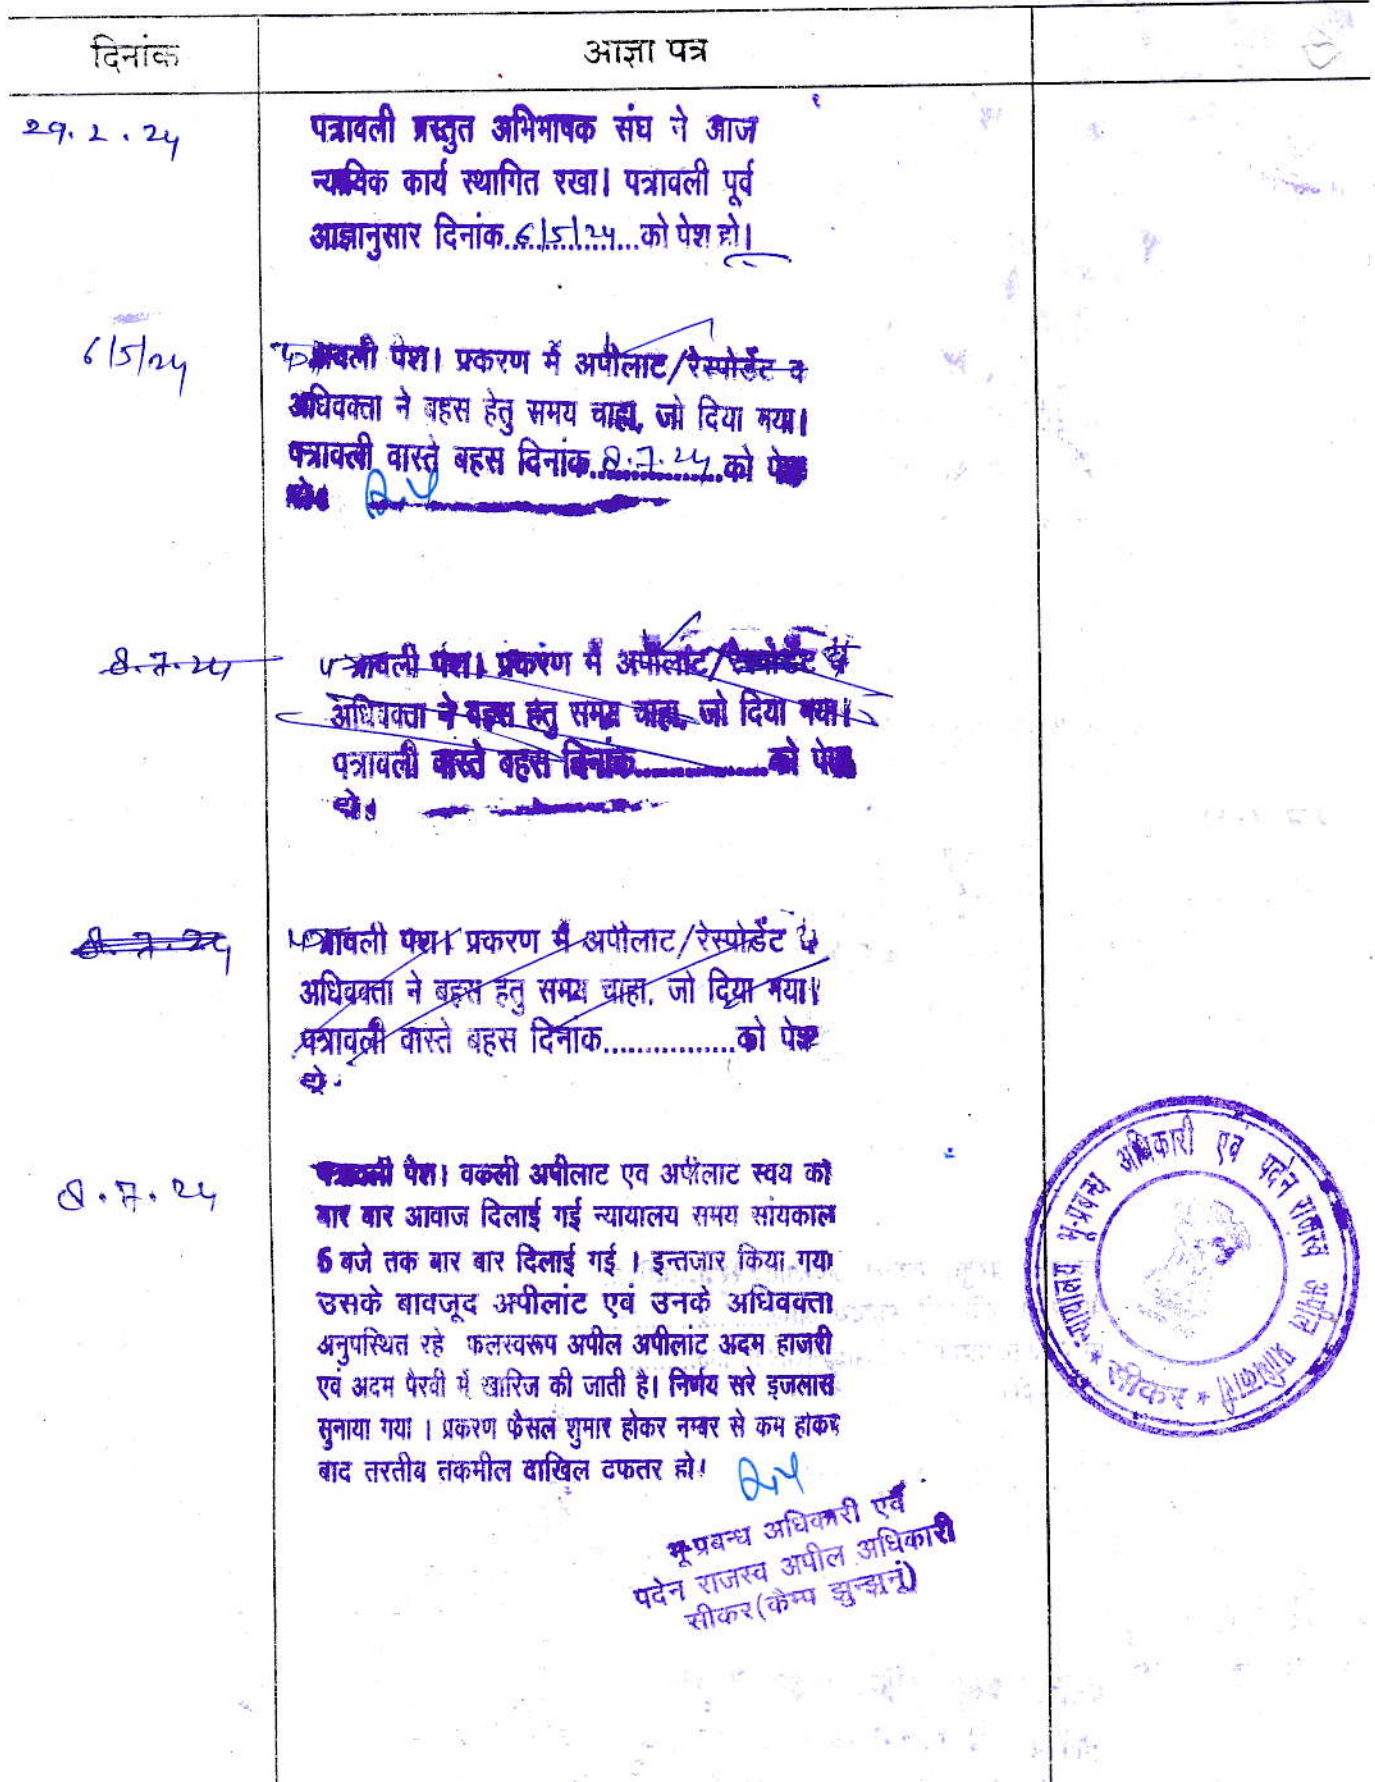 दिनांक
आज्ञा पत्र
29.2.24
पत्रावली प्रस्तुत अभिभाषक संघ ने आज
न्यायिक कार्य स्थागित रखा। पत्रावली पूर्व
आज्ञानुसार दिनांक..6/5/24..को पेश हो।
6/5/24
पत्रावली पेश। प्रकरण में अपीलाट/रेस्पोडेंट व
अधिवक्ता ने बहस हेतु समय चाहा, जो दिया गया।
पत्रावली वास्ते बहस दिनांक..8.7.24..को पेश
हो।
8.7.24
पत्रावली पेश। प्रकरण में अपीलांट/रेस्पोडेंट
अधिवक्ता ने बहस हेतु समय चाहा, जो दिया गया।
पत्रावली वास्ते बहस दिनांक................को पेश
हो।
8.7.24
पत्रावली पेश। प्रकरण में अपीलाट/रेस्पोडेंट
अधिवक्ता ने बहस हेतु समय चाहा, जो दिया गया।
पत्रावली वास्ते बहस दिनांक................को पेश
हो
8.7.24
पत्रावली पेश। वकली अपीलाट एव अपीलाट स्वय को
बार बार आवाज दिलाई गई न्यायालय समय सांयकाल
6 बजे तक बार बार दिलाई गई । इन्तजार किया गया
उसके बावजूद अपीलांट एवं उनके अधिवक्ता
अनुपस्थित रहे फलस्वरूप अपील अपीलांट अदम हाजरी
एवं अदम पैरवी में खारिज की जाती है। निर्णय सरे इजलास
सुनाया गया । प्रकरण फैसल शुमार होकर नम्बर से कम होकर
बाद तरतीब तकमील दाखिल दफतर हो।
भू-प्रबन्ध अधिकारी एवं
पदेन राजस्व अपील अधिकारी
सीकर(कैम्प झुन्झुनूं)
न्यायालय भू-प्रबन्ध अधिकारी एवं पदेन राजस्व अपील अधिकारी
* सीकर *